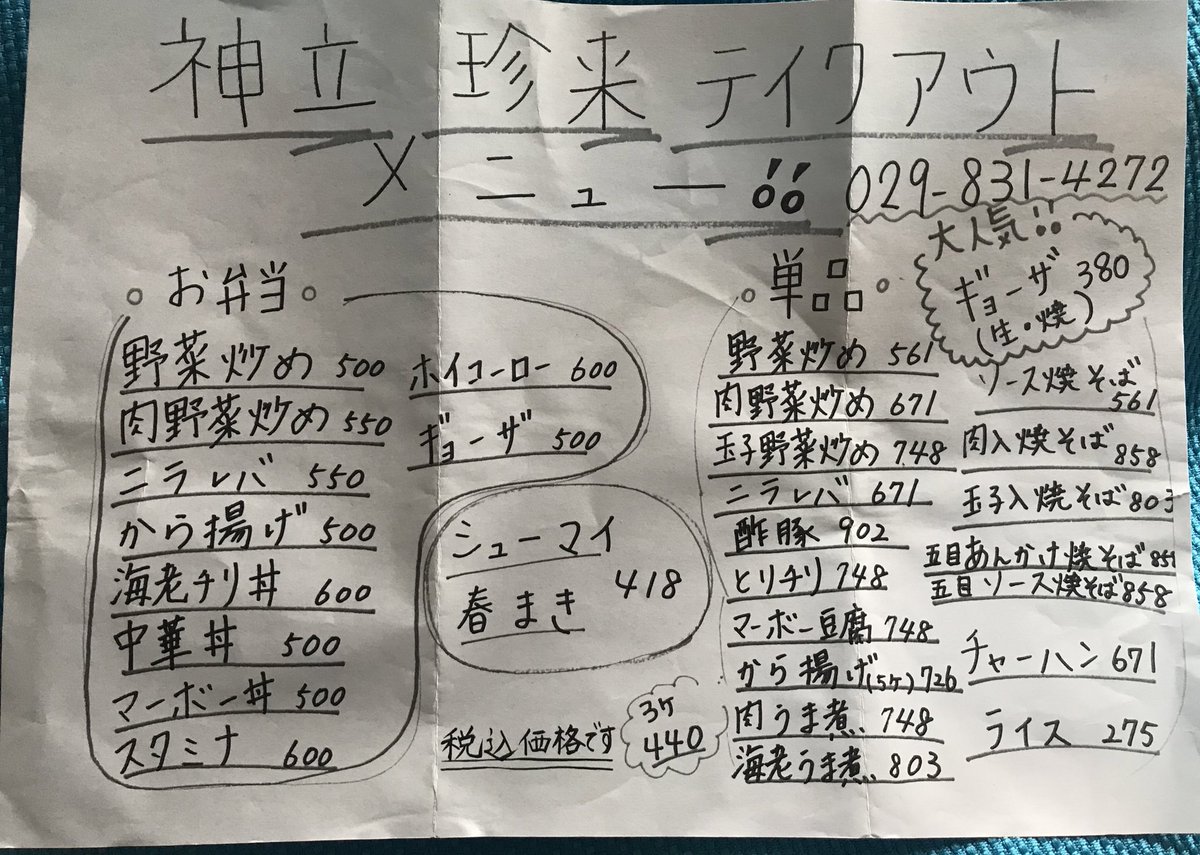 神立 珍来 テイクアウト
メニュー!! 029-831-4272
。お弁当。
野菜炒め 500
肉野菜炒め 550
ニラレバ 550
から揚げ 500
海老チリ丼 600
中華丼 500
マーボー丼 500
スタミナ 600
ホイコーロー 600
ギョーザ 500
シューマイ
春まき
418
税込価格です
。単品。
大人気!!
ギョーザ 380
(生・焼)
野菜炒め 561
肉野菜炒め 671
玉子野菜炒め 748
ニラレバ 671
酢豚 902
とりチリ 748
マーボー豆腐 748
から揚げ(5ケ) 726
3ケ
440
肉うま煮 748
海老うま煮 803
ソース焼そば
561
肉入焼そば 858
玉子入焼そば 803
五目あんかけ焼そば 851
五目ソース焼そば 858
チャーハン 671
ライス 275